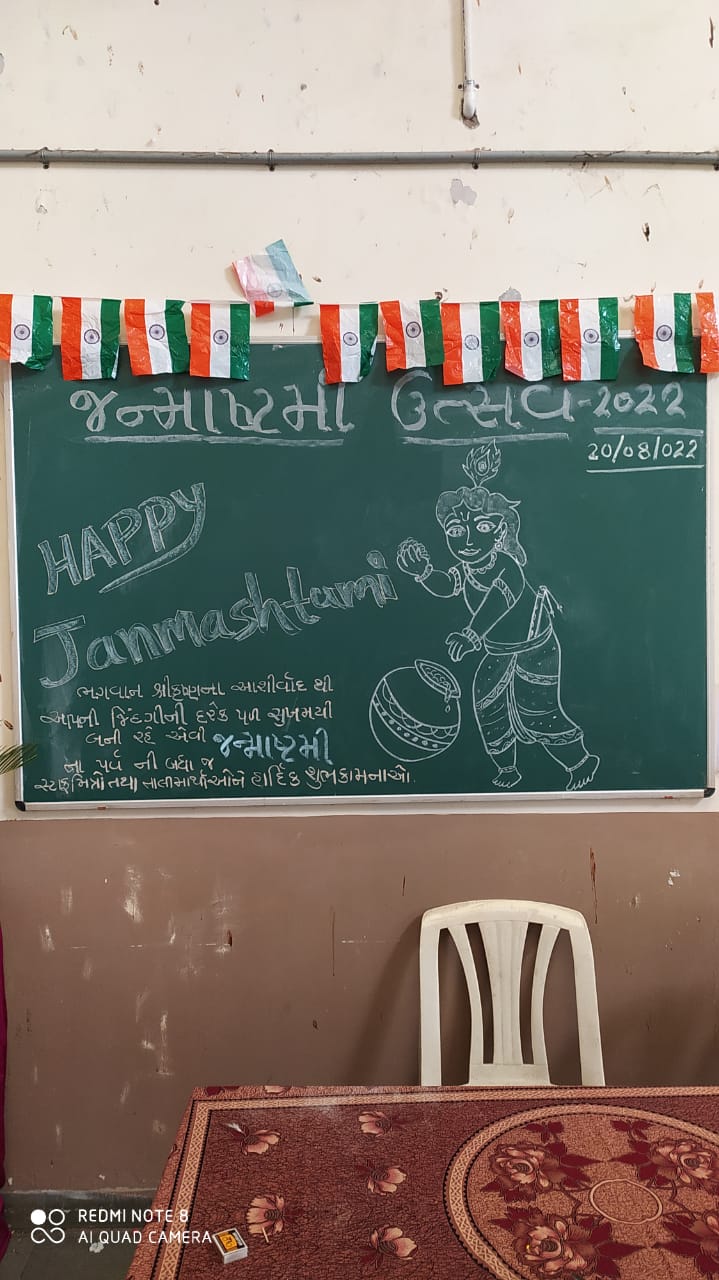 જન્માષ્ટમી ઉત્સવ-2022
20/08/022
HAPPY
Janmashtami
ભગવાન શ્રીકૃષ્ણના આશીર્વાદ થી
આપની જિંદગીની દરેક પળ સુખમયી
બની રહે એવી જન્માષ્ટમી
ના પર્વ ની બધા જ
સ્ટાફમિત્રો તથા તાલીમાર્થીઓને હાર્દિક શુભકામનાઓ.
REDMI NOTE 8
AI QUAD CAMERA